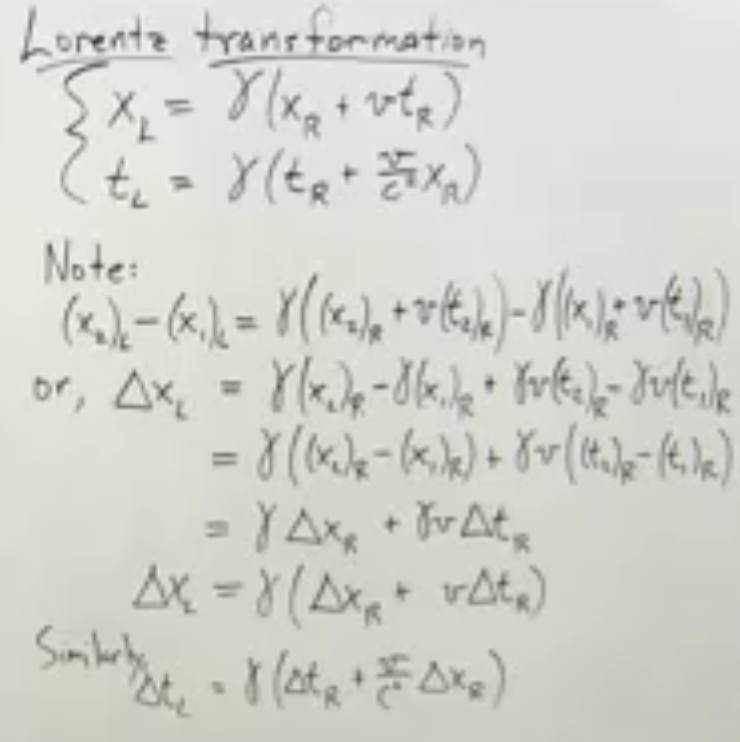 Lorentz transformation
{ x_L = γ(x_R + vt_R)
t_L = γ(t_R + v/c² x_R)
Note:
(x₂)_L - (x₁)_L = γ((x₂)_R + v(t₂)_R) - γ((x₁)_R + v(t₁)_R)
or, Δx_L = γ(x₂)_R - γ(x₁)_R + γv(t₂)_R - γv(t₁)_R
= γ((x₂)_R - (x₁)_R) + γv((t₂)_R - (t₁)_R)
= γΔx_R + γvΔt_R
Δx_L = γ(Δx_R + vΔt_R)
Similarly,
Δt_L = γ(Δt_R + v/c² Δx_R)